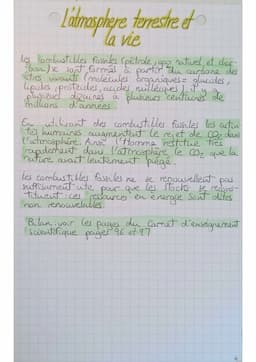 L'atmosphère terrestre et
la vie
Les combustibles fossiles (pétrole, gaz naturel et char
bon) se sont formés à partir du carbone des
êtres vivants (molécules organiques : glucides,
lipides, protides, acides nucléiques) il y a
plusieurs dizaines à plusieurs centaines de
millions d'années.
En utilisant des combustibles fossiles les activi
tés humaines augmentent le rejet de CO2 dans
l'atmosphère. Ainsi l'Homme restitue très
rapidement dans l'atmosphère le CO2 que la
nature avait lentement piégé.
Les combustibles fossiles ne se renouvellent pas
suffisamment vite pour que les stocks se recons-
tituent : ces ressources en énergie sont dites
non renouvelables.
Bilan : voir les pages du carnet d'enseignement
scientifique pages 96 et 97